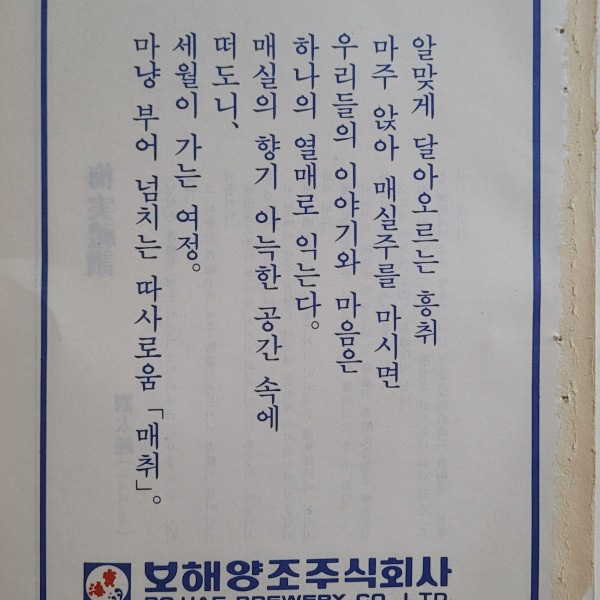 알맞게 달아오르는 흥취
마주 앉아 매실주를 마시면
우리들의 이야기와 마음은
하나의 열매로 익는다.
매실의 향기 아늑한 공간 속에
떠도니,
세월이 가는 여정。
마냥 부어 넘치는 따사로움 「매취」。
보해양조주식회사
BO HAE BREWERY CO., LTD.